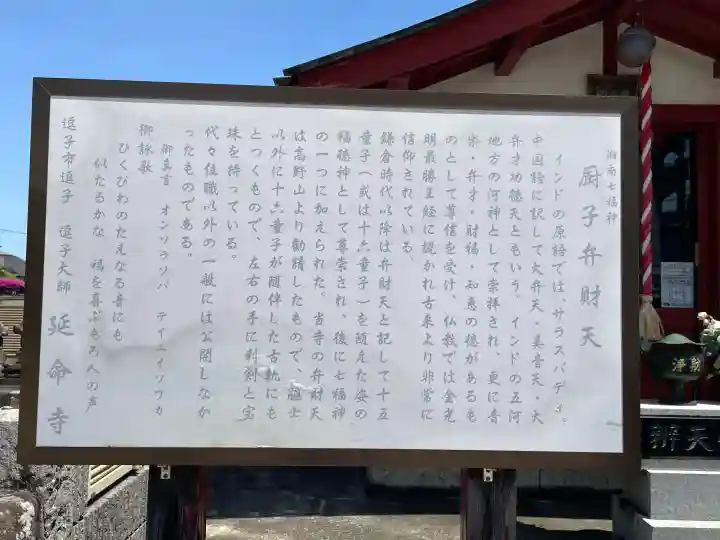 湘南七福神
厨子弁財天
インドの原語では、サラスバディ。
中国語に訳して大弁天・美音天・大
弁才功徳天ともいう。インドの五河
地方の河神として崇拝され、更に音
楽・弁才・財福・知恵の徳があるも
のとして尊信を受け、仏教では金光
明最勝王経に説かれ古来より非常に
信仰されている。
鎌倉時代以降は弁財天と記して十五
童子（或は十六童子）を随えた姿の
福徳神として尊崇され、後に七福神
の一つに加えられた。当寺の弁財天
は高野山より勧請したもので、脇士
以外に十六童子が随伴した古軌にも
とづくもので、左右の手に利剣と宝
珠を持っている。
代々住職以外の一般には公開しなか
ったものである。
御真言 オンソラソバ テイエイソワカ
御詠歌
ひくびわのたえなる音にも
似たるかな 福を喜ぶもろ人の声
逗子市逗子 逗子大師 延命寺
浄
辨天